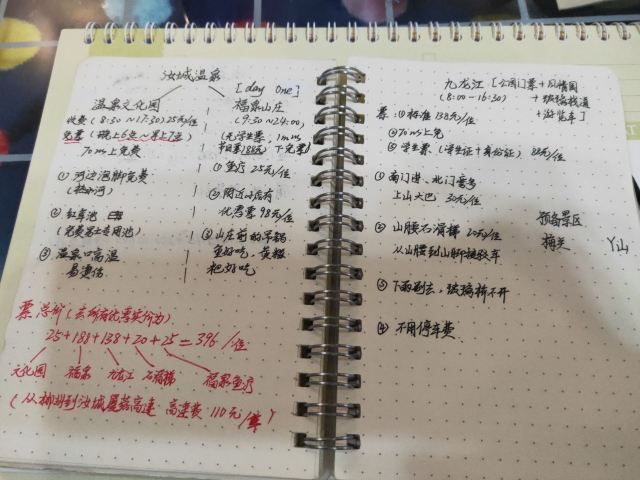 汝城温泉
[day One]
温泉文化园
收费 (8:30~17:30) 25元/位
免费 (晚上6点~早上7点)
70岁上免费
① 河边泡脚免费
② 红军池
③ 温泉口高温
易烫伤
福泉山庄
(9:30~24:00)
(无学生票, 1m
节日票188元 下免票)
① 鱼疗 25元/位
② 附近的店有
优惠票 98元/位
③ 山庄前的吊锅
鱼好吃, 黄糍
粑好吃
票总价 (去
25+188+138+20+25=396/位
文化园 福泉 九龙江 石滑梯 福泉鱼疗
(从郴州到汝城 高速 高速费 110元/车)
九龙江 [公园门票+风情园
+玻璃栈道
+游览车]
(8:00-16:30)
票: ① 标准 138元/位
② 70岁上免
③ 学生票 (学生证+身份证) 88元/位
① 南门进、北门
上山大巴 30元/位
② 山腰石滑梯 20元/位
从山腰到山脚
③ 下雨别去, 玻璃桥不开
④ 不用停车费
预备景区
梅关
丫山